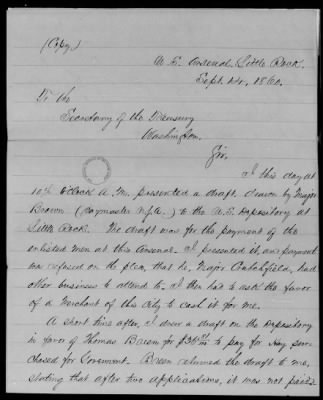 (Copy)
U.S. Arsenal Little Rock
Sept. 14. 1860.
To the
Secretary of the Treasury
Washington.
Sir.
I this day at
10½ O'clock A.M. presented a draft, drawn by Major
Brown (Paymaster U.S.A.) to the U.S. Depository at
Little Rock. The draft was for the payment of the
enlisted men at this Arsenal. I presented it, and payment
was refused on the plea, that he, Major Crutchfield, had
other business to attend to. I then had to ask the favor
of a Merchant of this City to cash it for me.
A short time after, I drew a draft on the Depository
in favor of Thomas for to pay for Hay pur-
chased for Goverment. returned the draft to me,
stating that after two applications, it was not paid.